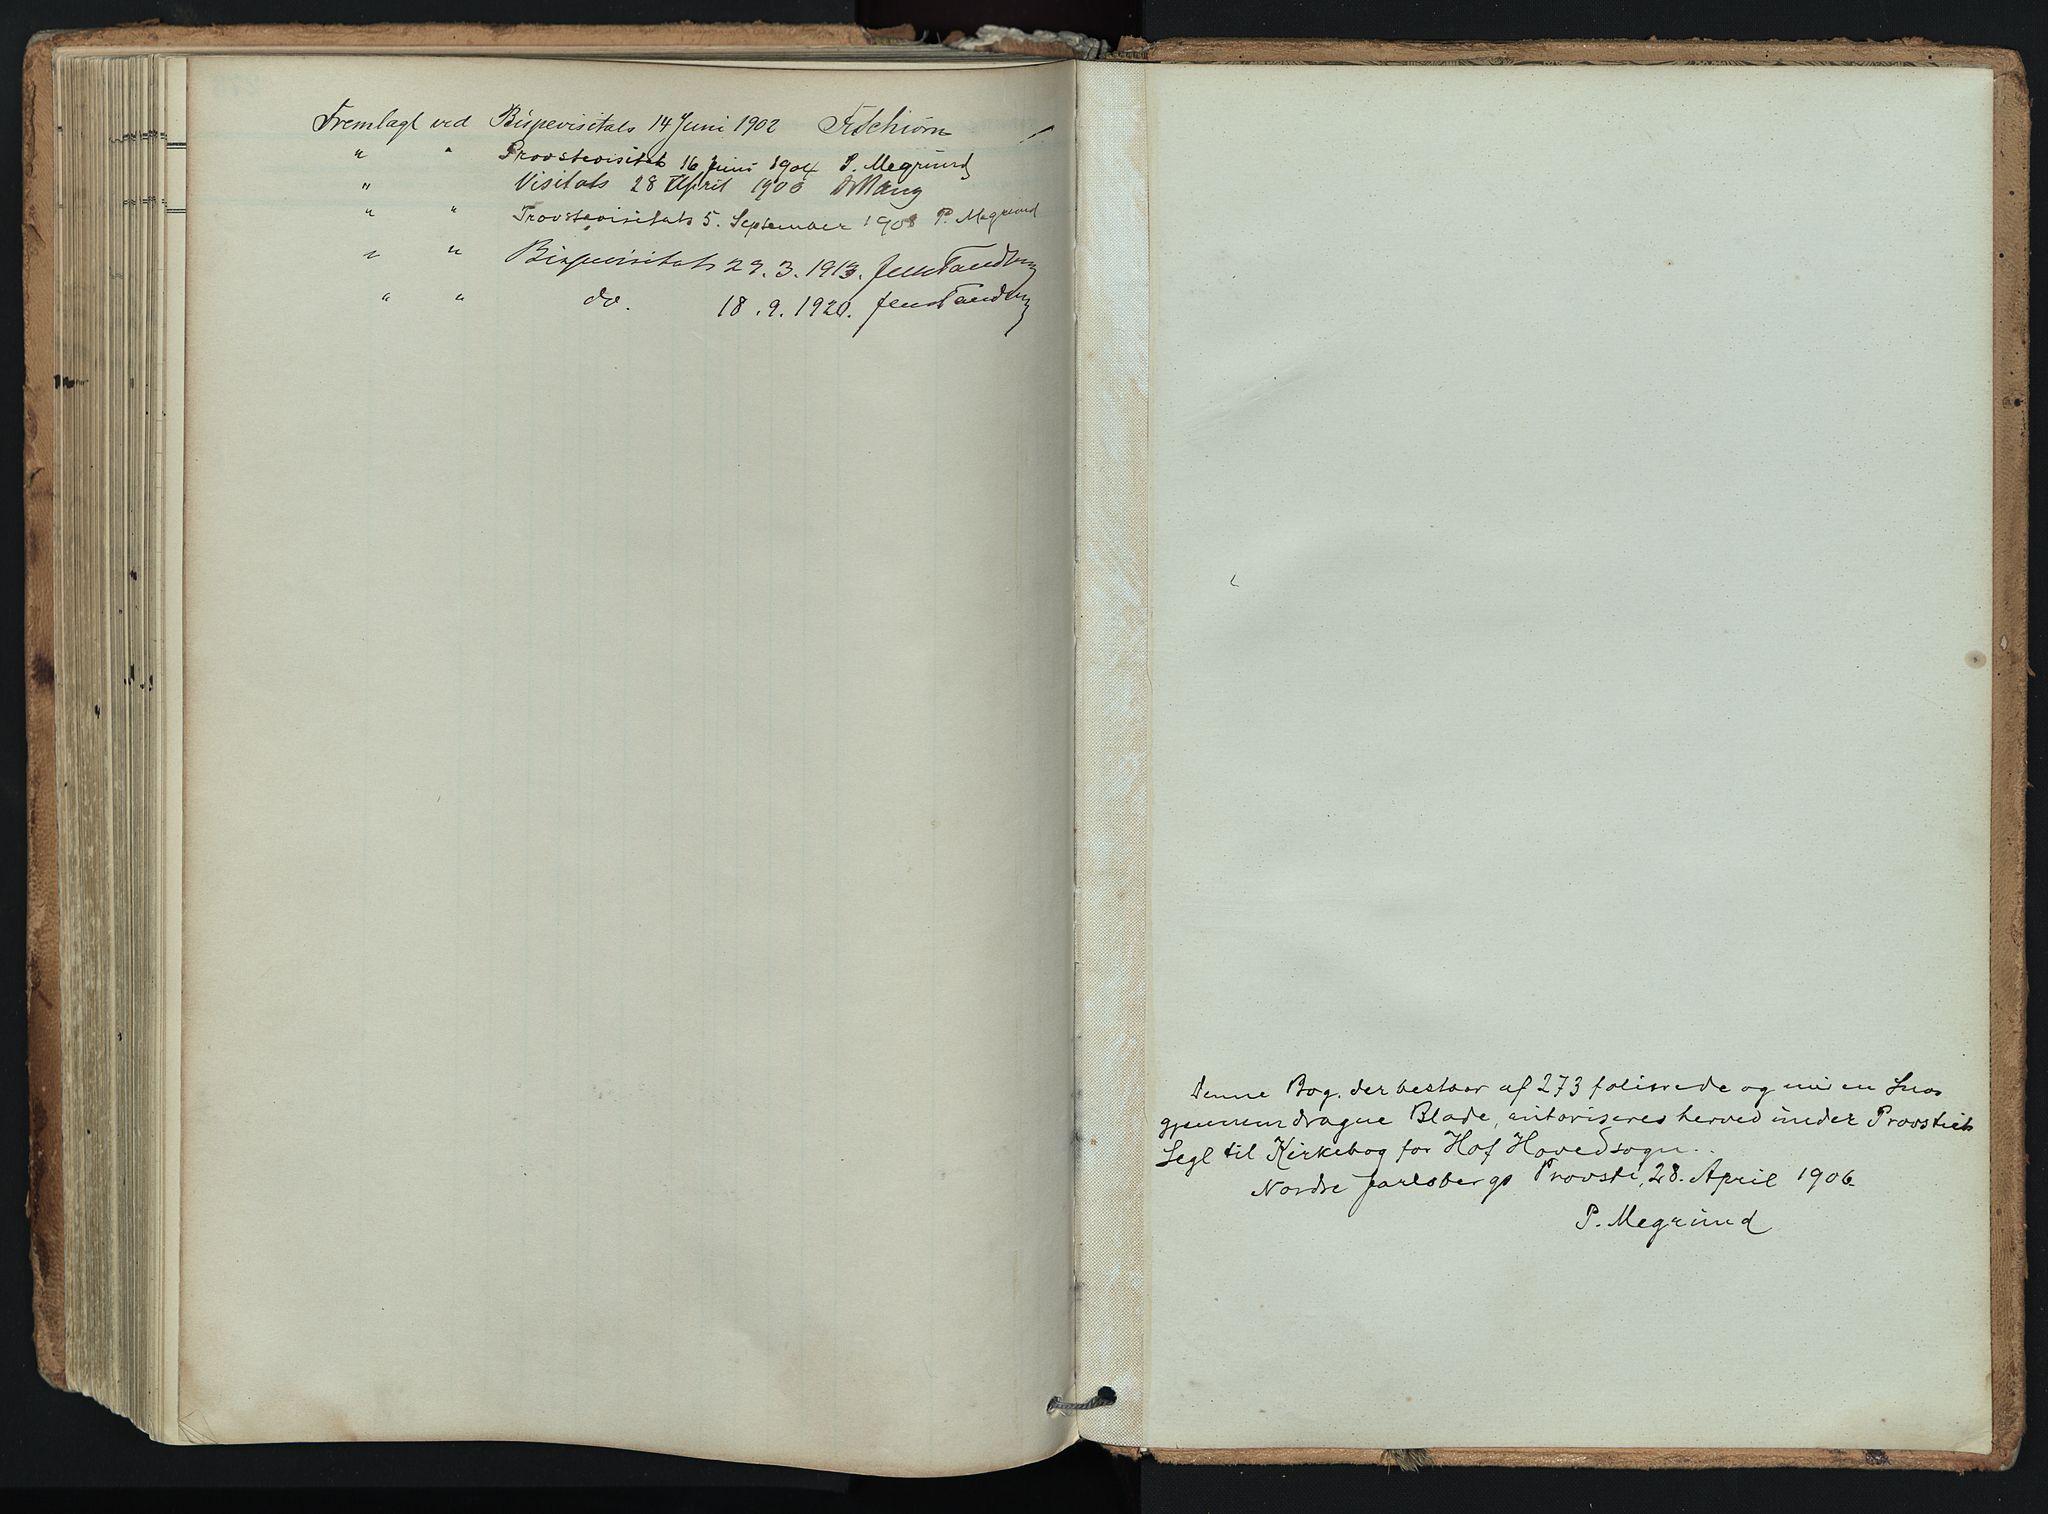 Fremlagt ved Bispevisitats 14 Juni 1902
" " Provstevisitat 16 Juni 1904 P. Megrund
" Visitats 28 April 1906
" " Provstevisitats 5. September 1908 P. Megrund
" " Bispevisitats 29. 3. 1913. Jens Tandberg
" " do. 18. 9. 1920. Jens Tandberg
Denne Bog, der bestaar af 273 folierede og med en Snor
gjennemdragne Blade, autoriseres herved under Provstiets
Segl til Kirkebog for Hof Hovedsogn.
Nordre Jarlsbergs Provsti, 28. April 1906.
P. Megrund